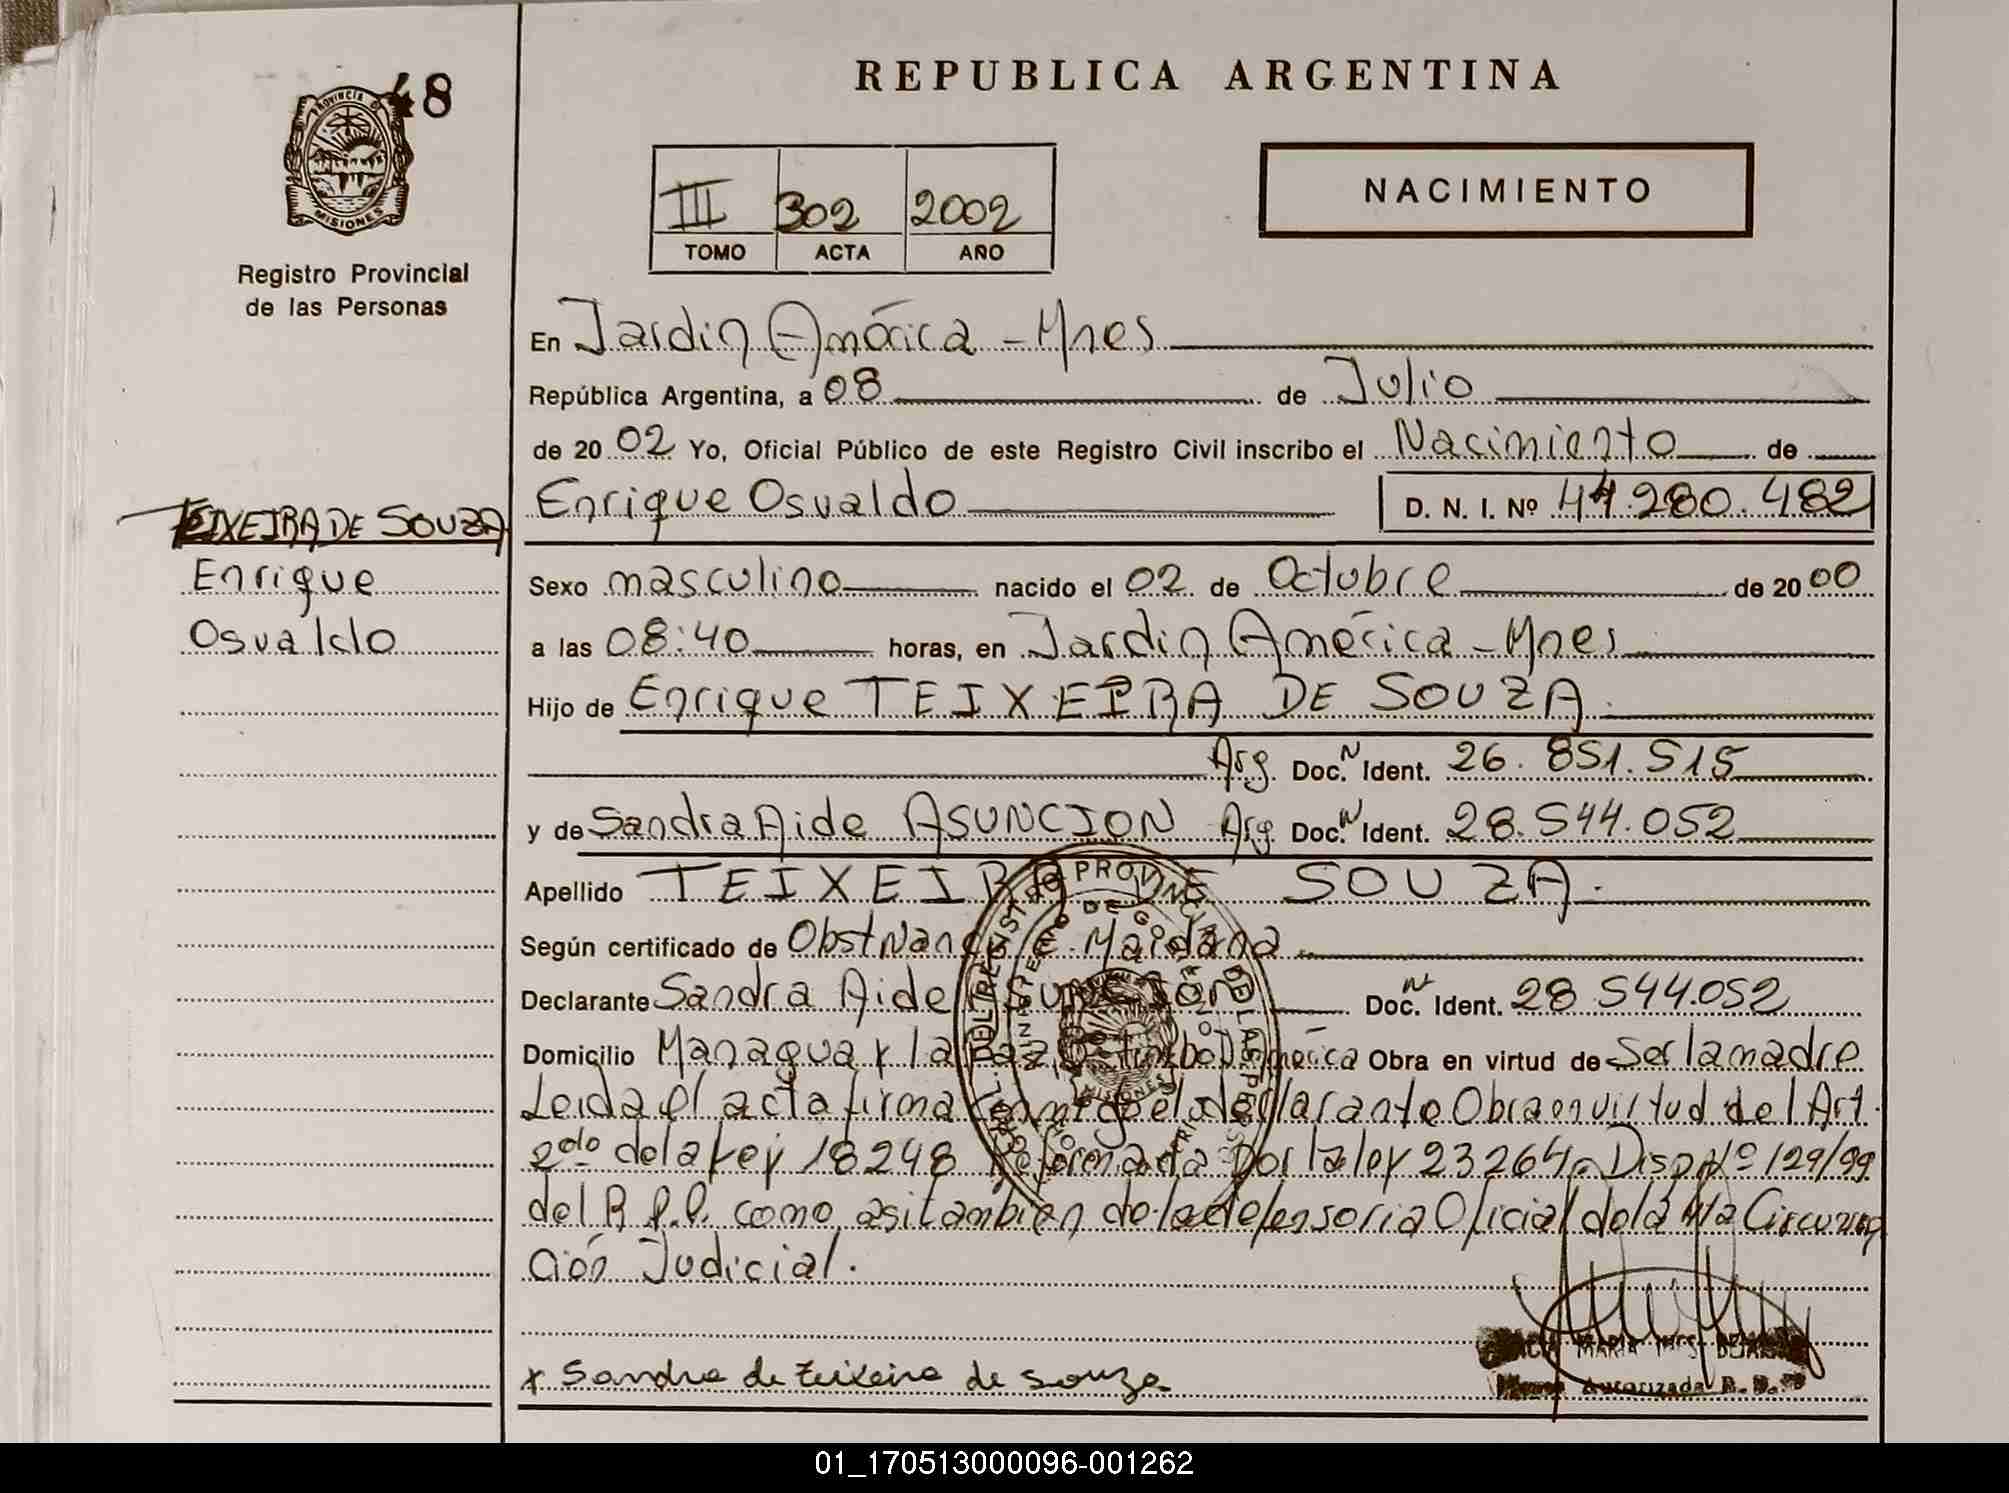 48
PROVINCIA DE
MISIONES
Registro Provincial
de las Personas
TEIXEIRA DE SOUZA
Enrique
Osvaldo
REPUBLICA ARGENTINA
III 302 2002
TOMO ACTA AÑO
NACIMIENTO
En Jardin América - Mnes
República Argentina, a 08 de Julio
de 2002 Yo, Oficial Público de este Registro Civil inscribo el Nacimiento de
Enrique Osvaldo D. N. I. Nº 44.280.482
Sexo masculino nacido el 02 de Octubre de 2000
a las 08:40 horas, en Jardin América - Mnes
Hijo de Enrique TEIXEIRA DE SOUZA.
Arg. Doc. N Ident. 26.851.515
y de Sandra Aide ASUNCION Arg. Doc. N Ident. 28.544.052
Apellido TEIXEIRA DE SOUZA.
Según certificado de Obst Nancy Maidana
Declarante Sandra Aide Asuncion Doc. N Ident. 28.544.052
Domicilio Managua y la Paz América Obra en virtud de Ser la madre
Leida el acta firma conmigo el declarante Obra en virtud del Art.
2do de la Ley 18248 Reformada por la ley 23264. Disp Nº 129/99
del R.P.P. como asi tambien de la defensoria Oficial de la 4ta Circunscrip
ción Judicial.
x Sandra de Teixeira de Souza
MARIA INES
Autorizada R.
01_170513000096-001262